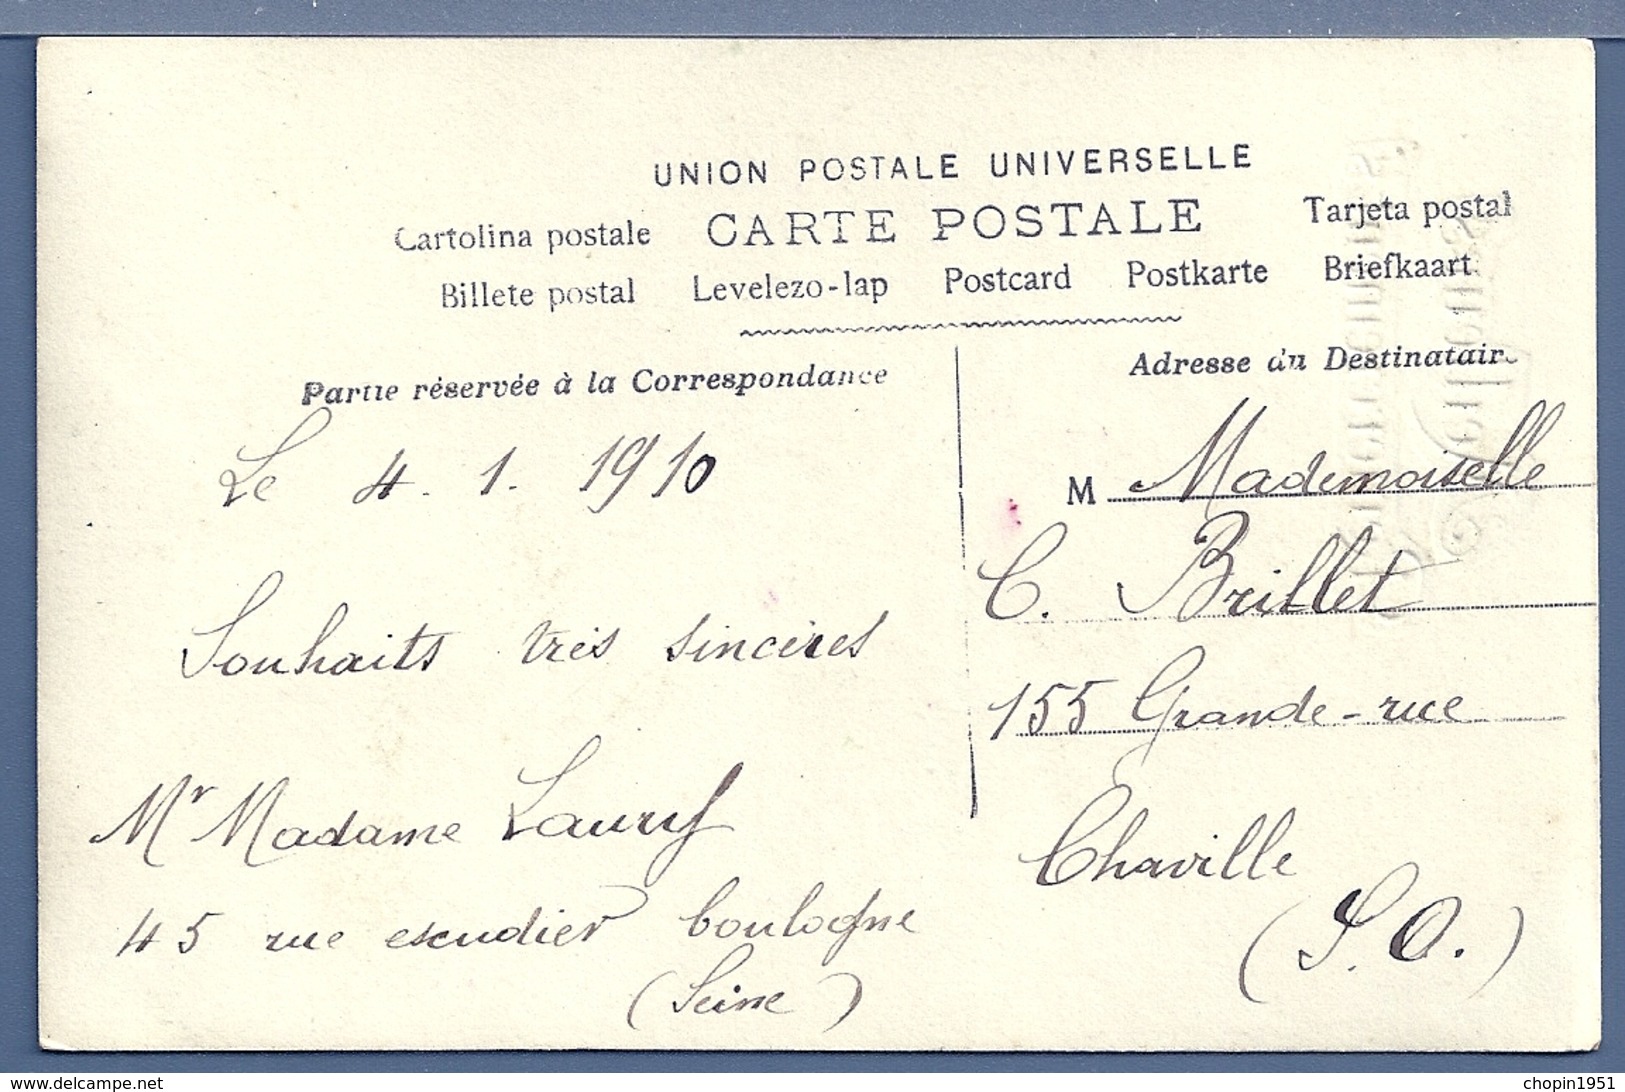 UNION POSTALE UNIVERSELLE
Cartolina postale CARTE POSTALE Tarjeta postal
Billete postal Levelezo-lap Postcard Postkarte Briefkaart
Partie réservée à la Correspondance
Adresse du Destinataire
Le 4. 1. 1910
Souhaits très sincères
Mr Madame
45 rue escudier boulogne
(Seine)
M Mademoiselle
C. Brillet
155 Grande-rue
Chaville
(S. O.)
delcampe.net
chopin1951